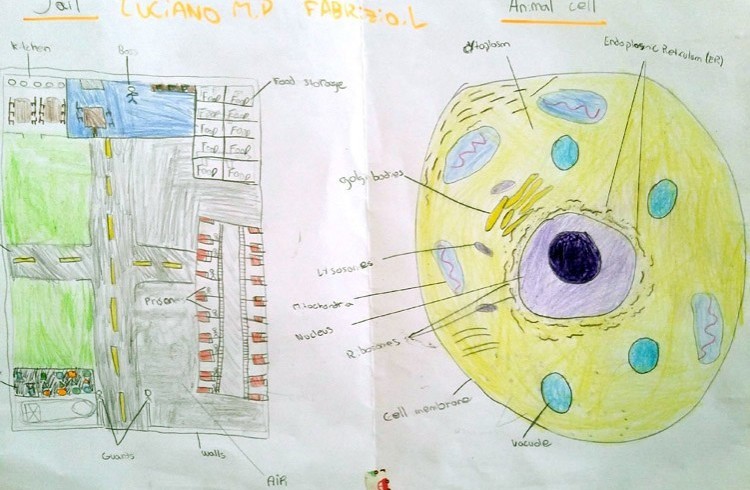 Jail
LUCIANO M.D FABRIZIO.L
Animal cell
Kitchen
Boss
Food storage
Food Food
Food Food
Food Food
Food Food
Food Food
Guards
Walls
AIR
Cytoplasm
Golgi bodies
Lysosomes
Mitochondria
Nucleus
Ribosomes
Cell membrane
Vacuole